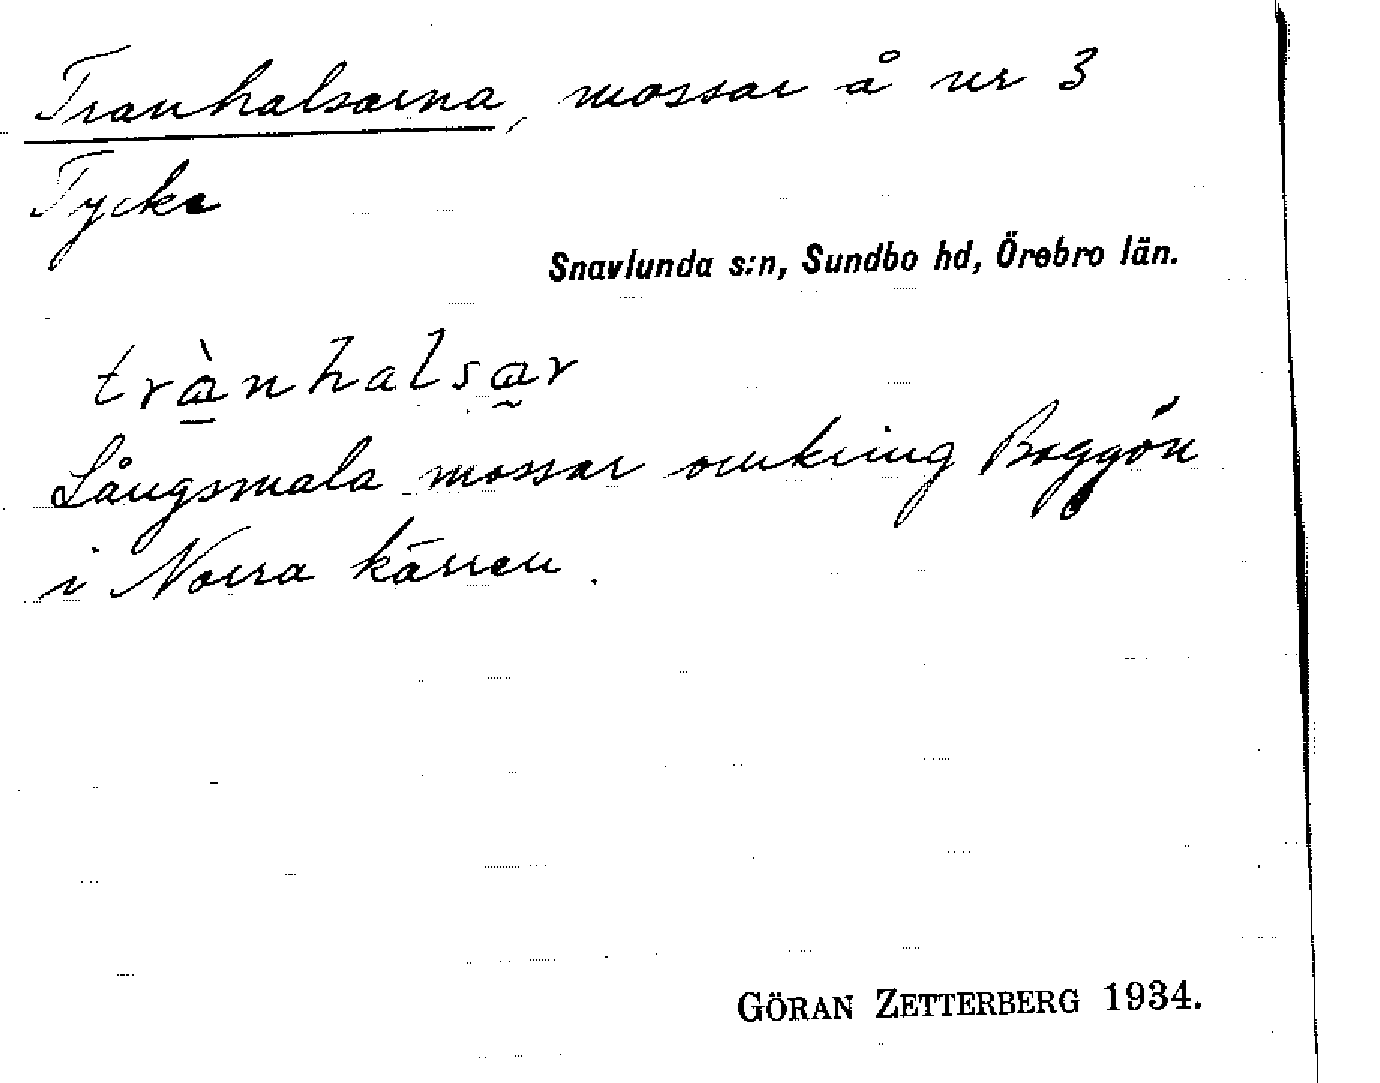 Tranhalsarna, mossar å nr 3
Tycke
Snavlunda s:n, Sundbo hd, Örebro län.
trànhalsar
Långsmala mossar omkring Boggön
i Norra kärren.
GÖRAN ZETTERBERG 1934.